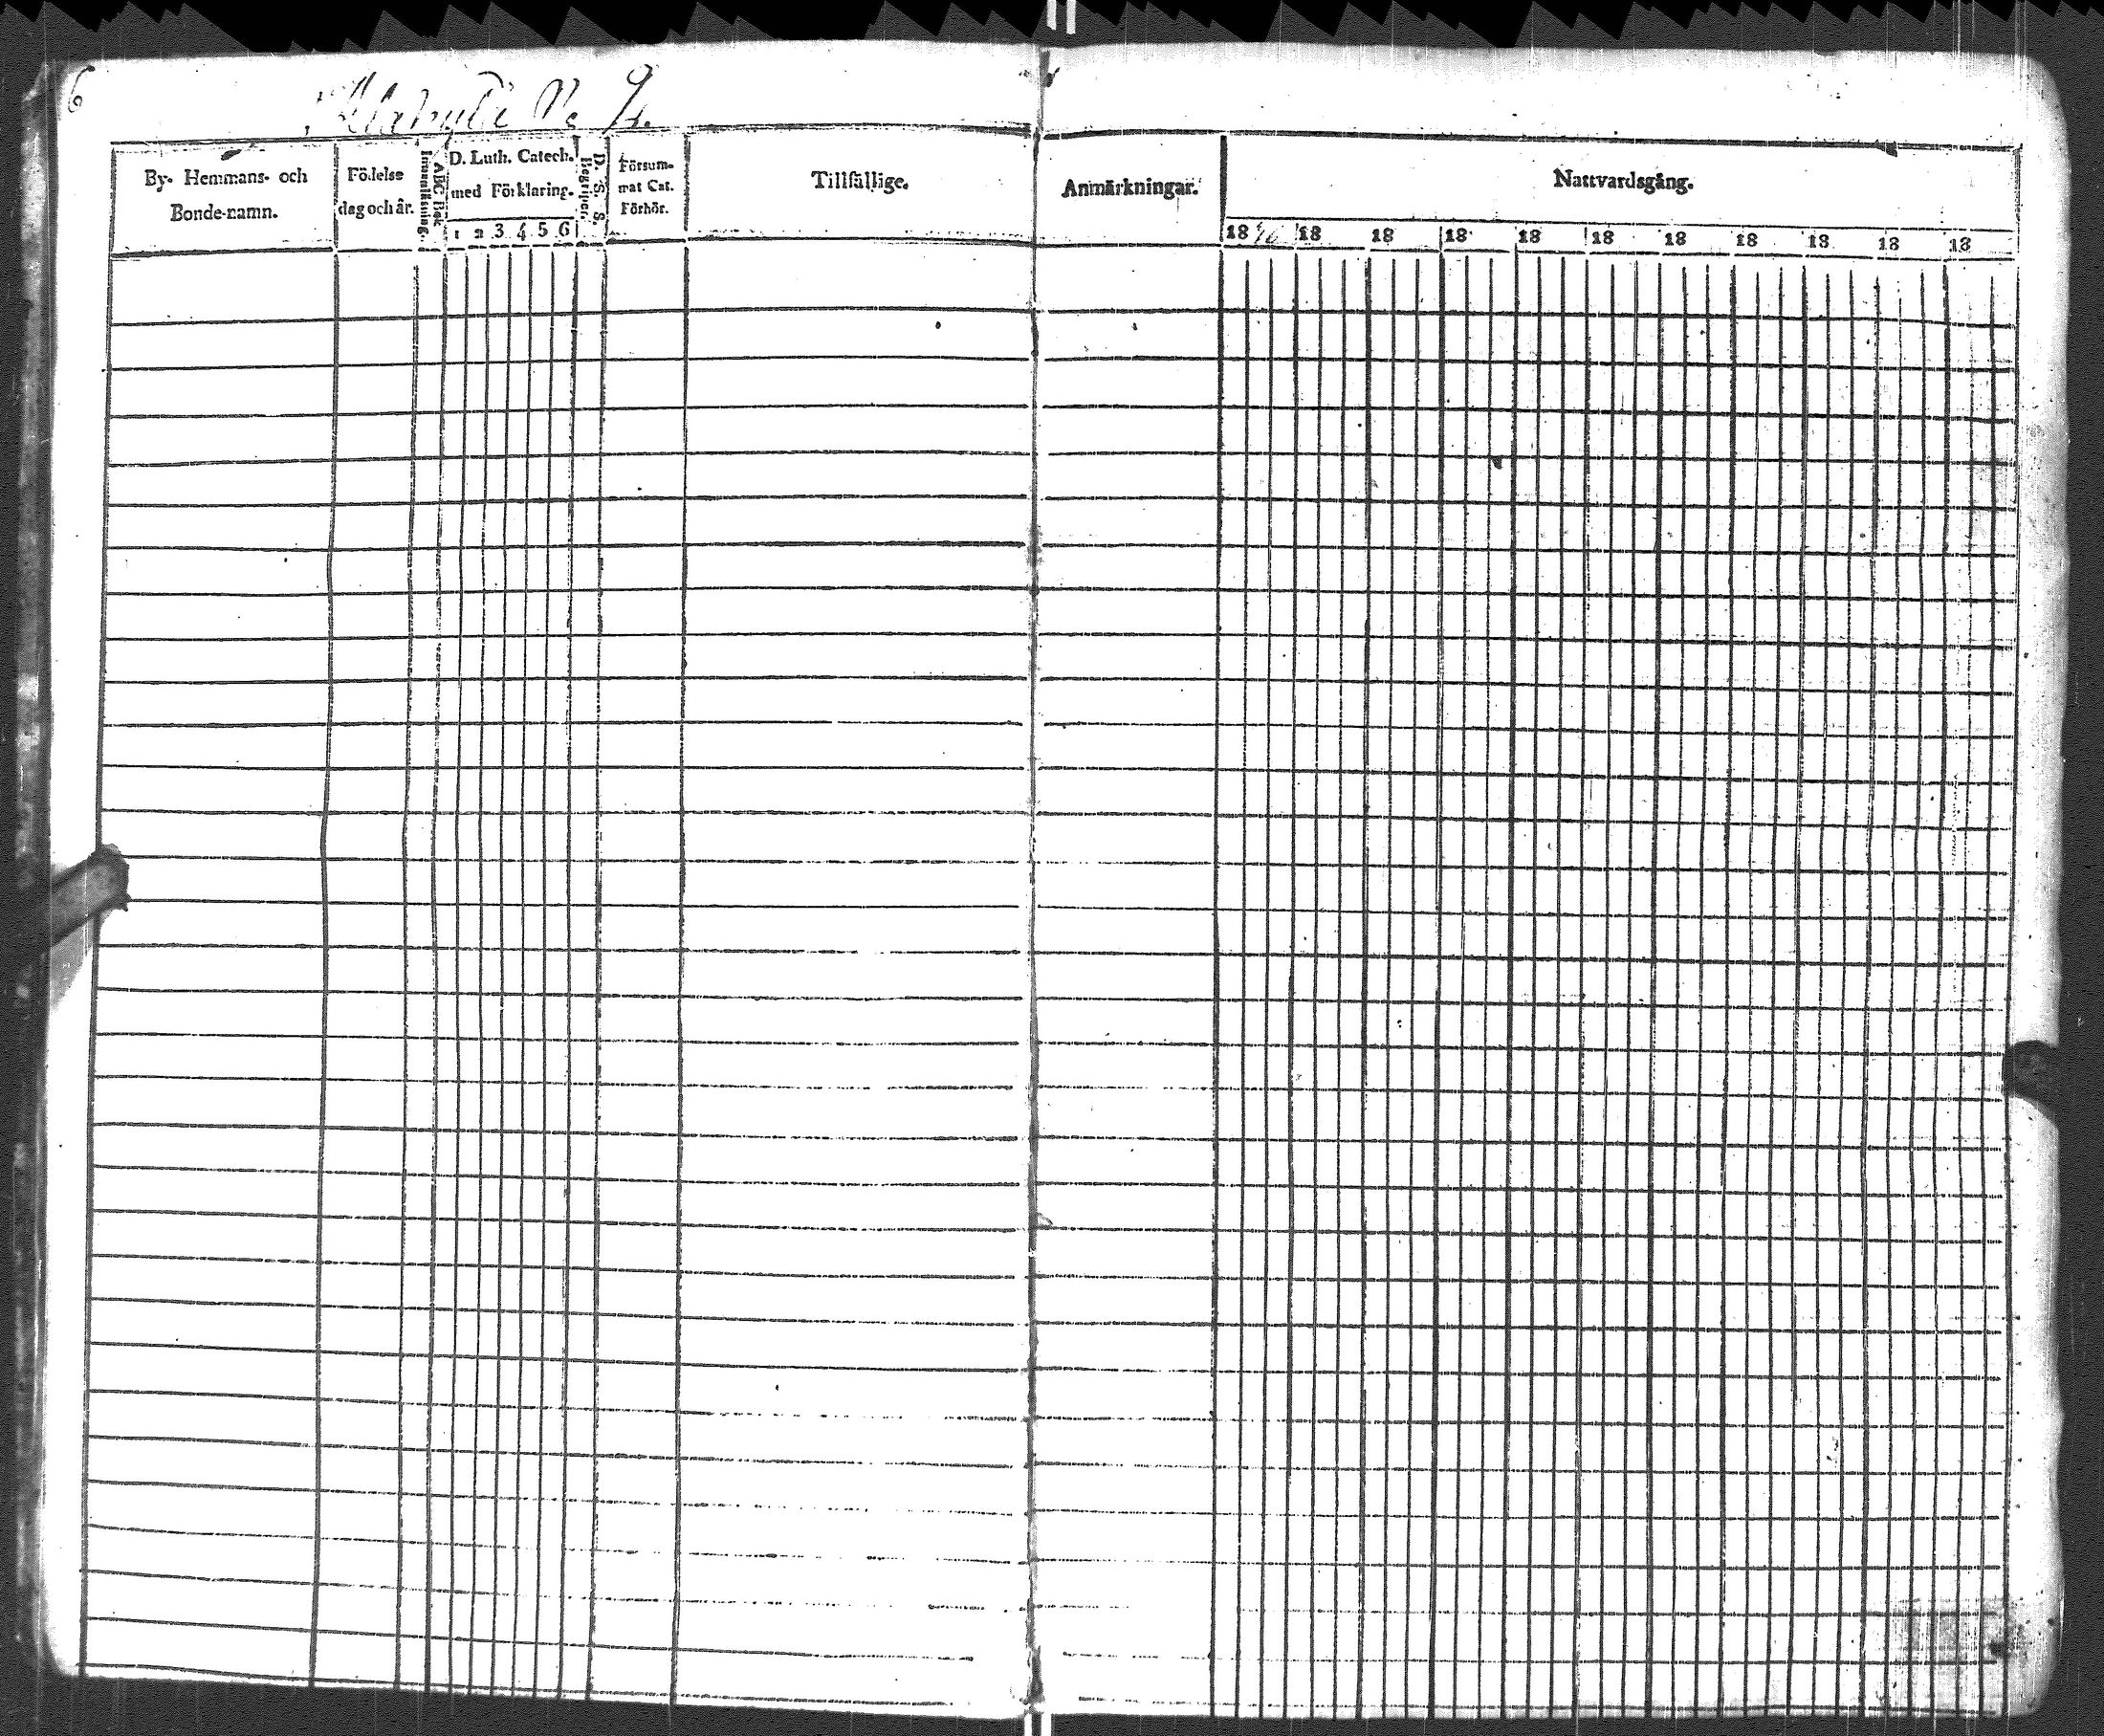 6
Alakylä No 9.
By- Hemmans- och Bonde-namn.
Födelse dag och år.
ABC Bok Innanläsning.
D. Luth. Catech. med Förklaring.
1 2 3 4 5 6
D. S. S. Begriper.
Försum-
mat Cat.
Förhör.
Tillfällige.
Anmärkningar.
Nattvardsgång.
18 18 18 18 18 18 18 18 18 18 18